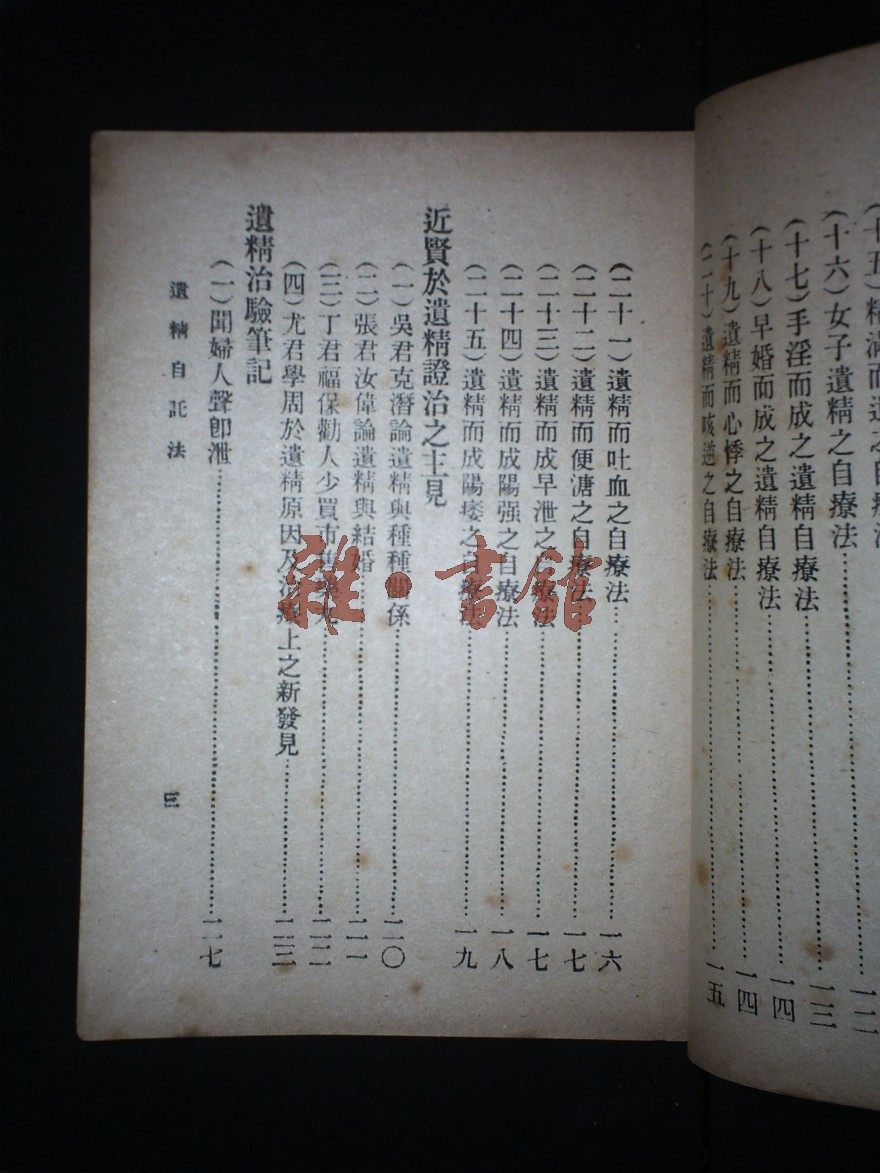 (十六)女子遺精之自療法
(十七)手淫而成之遺精自療法……一三
(十八)早婚而成之遺精自療法……一四
(十九)遺精而心悸之自療法……一四
(二十)遺精而咳逆之自療法……一五
(二十一)遺精而吐血之自療法……一六
(二十二)遺精而便溏之自療法……一七
(二十三)遺精而成早泄之自療法……一七
(二十四)遺精而成陽强之自療法……一八
(二十五)遺精而成陽痿之自療法……一九
近賢於遺精證治之主見
(一)吳君克潛論遺精與種種關係……二〇
(二)張君汝偉論遺精與結婚……二一
(三)丁君福保勸人少買市售……二二
(四)尤君學周於遺精原因及治療上之新發見……二三
遺精治驗筆記
(一)聞婦人聲卽泄……二七
遺精自託法
三
雜·書館